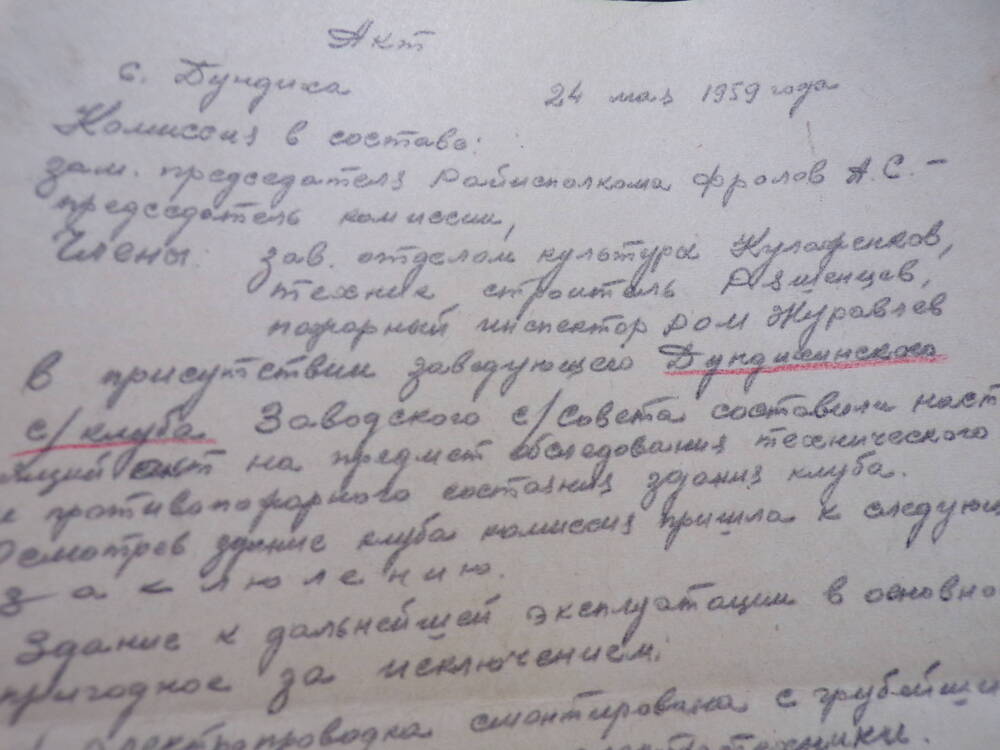 Акт
с. Дундиха 24 мая 1959 года
Комиссия в составе:
зам. председателя Райисполкома Фролов А.С. –
председатель комиссии,
Члены: зав. отделом культуры Кулафенков,
техник строитель Ряшенцев,
пожарный инспектор РОМ Журавлев
В присутствии заведующего Дундихинского
с/клуба Заводского с/Совета составили наст
ящий акт на предмет обследования технического
и противопожарного состояния здания клуба.
Осмотрев здание клуба комиссия пришла к следующ
заключению.
Здание к дальнейшей эксплуатации в основно
пригодное за исключением.
1. Электропроводка смонтирована с грубейши